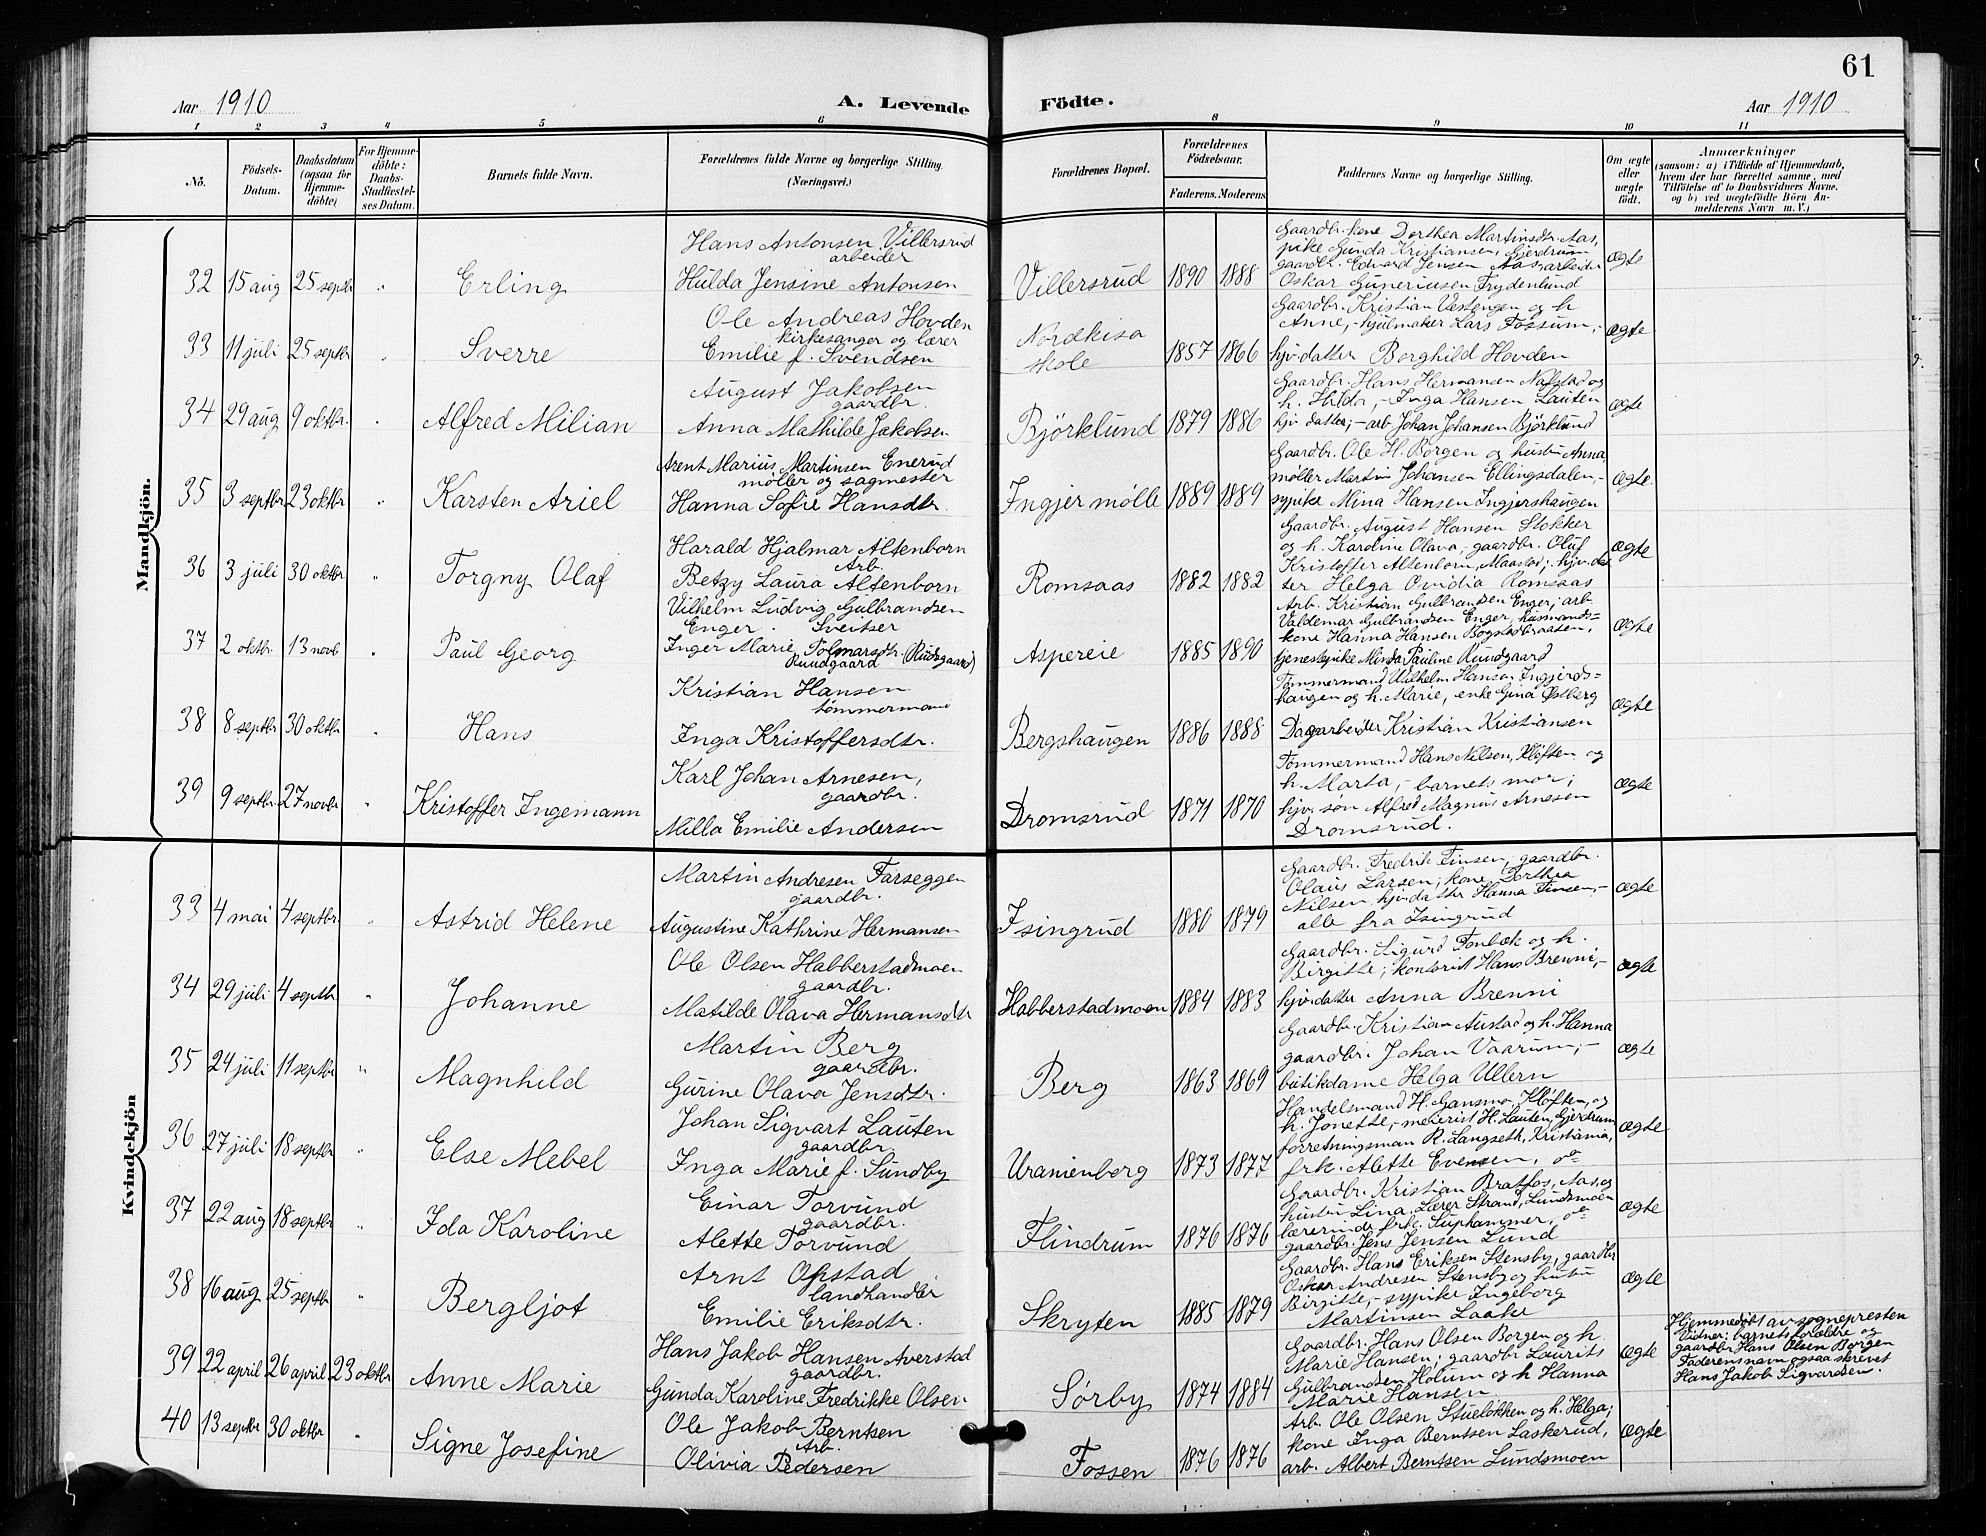 61
Aar 1910 A. Levende Födte. Aar 1910
1 2 3 4 5 6 8 9 10 11
Nô. Födsels-Datum. Daabsdatum (ogsaa for Hjemme-döbte) For Hjemme-döbte: Daabs-Stadfæstel-ses Datum. Barnets fulde Navn. Forældrenes fulde Navne og borgerlige Stilling. (Næringsvei.) Forældrenes Bopæl. Forældrenes Födselsaar. Faderens. Moderens. Faddernes Navne og borgerlige Stilling. Om ægte eller uægte födt. Anmærkninger (saasom: a) i Tilfælde af Hjemmedaab, hvem der har forrettet samme, med Tilföielse af to Daabsvidners Navne. og b) ved uegtefödte Börn An-melderens Navn m. V.)
Mandkjön.
32 15 aug 25 septbr " Erling
Hans Antonsen Villersrud
arbeider
Hulda Jensine Antonsen
Villersrud 1890 1888
Gaardbr. kone Dorthea Martinsdtr. Aas,
pike Gunda Kristiansen, Gjerdrum
gaardbr. Edvard Jensen Aas, arbeider
Oskar Guneriusen Frydenlund
ægte
33 11 juli 25 septbr " Sverre
Ole Andreas Hovden
kirkesanger og lærer
Emilie f. Svendsen
Nordkisa
skole 1857 1866
Gaardbr. Kristian Vestengen og h.
Anne, - hjulmaker Lars Fossum, -
hjv. datter Borghild Hovden
ægte
34 29 aug 9 oktbr. " Alfred Milian
August Jakobsen
gaardbr.
Anna Mathilde Jakobsen
Björklund 1879 1886
Gaardbr. Hans Hermansen Nafstad og
h. Hilda, - Inga Hansen Lauten
hjv. datter, - arb. Johan Johansen Björklund
ægte
35 3 septbr 23 oktbr " Karsten Ariel
Arent Marius Martinsen Enerud
møller og sagmester
Hanna Sofie Hansdtr.
Ingjer mølle 1889 1889
Gaardbr. Ole H. Borgen og hustru Anna,
møller Martin Johansen Ellingsdalen, -
sypike Mina Hansen Ingjershaugen
ægte
36 3 juli 30 oktbr " Torgny Olaf
Harald Hjalmar Altenborn
Arb.
Betzy Laura Altenborn
Romsaas 1882 1882
Gaardbr. August Hansen Stokker
og h. Karoline Olava, gaardbr. Oluf
Kristoffer Altenborn, Maastad; hjv. dat
ter Helga Ovidia Romsaas
ægte
37 2 oktbr. 13 novb " Paul Georg
Vilhelm Ludvig Gulbrandsen
Enger. Sveitser
Inger Marie Tolmarsdtr. (Rudsgaard)
Ruudgaard
Aspereie 1885 1890
Arb. Kristian Gulbrandsen Enger; arb.
Valdemar Gulbrandsen Enger, husmands-
kone Hanna Hansen Bogstadbraaten,
tjenestepike Minda Pauline Ruudgaard
ægte
38 8 septbr 30 oktbr " Hans
Kristian Hansen
tømmermand
Inga Kristoffersdtr.
Bergshaugen 1886 1888
Tømmermand Wilhelm Hansen Ingjerds-
haugen og h. Marie, enke Gina Østberg
Dagarbeider Kristian Kristiansen
ægte
39 9 septbr. 27 novbr " Kristoffer Ingemann
Karl Johan Arnesen,
gaardbr.
Milla Emilie Andersen
Dromsrud 1871 1870
Tømmermand Hans Nilsen, Kløften og
h. Marta, - barnets mor;
hjv. søn Alfred Magnus Arnesen
Dromsrud.
ægte
Kvindekjön
33 4 mai 4 septbr. " Astrid Helene
Martin Andresen Farseggen
gaardbr.
Augustine Kathrine Hermansen
Isingrud 1880 1879
Gaardbr. Fredrik Finsen, gaardbr.
Olaus Larsen; kone Dorthea
Nilsen, hjv. datter Hanna Finsen, -
alle fra Isingrud
ægte
34 29 juli 4 septbr. " Johanne
Ole Olsen Habberstadmoen
gaardbr.
Matilde Olava Hermansdtr
Habberstadmoen 1884 1883
Gaardbr. Sigurd Fonbæk og h.
Birgitte; kontorist Hans Brenni, -
hjv. datter Anna Brenni
ægte
35 24 juli 11 septbr " Magnhild
Martin Berg
gaardbr.
Gurine Olava Jensdtr.
Berg 1863 1869
Gaardbr. Kristian Austad og h. Hanna
gaardbr. Johan Vaarum, -
butikdame Helga Ullern
ægte
36 27 juli 18 septbr " Else Mebel
Johan Sigvart Lauten
gaardbr.
Inga Marie f. Sundby
Uranienborg 1873 1877
Handelsmand H. Gansmo, Kløften, og
h. Jonette, - meierist H. Lauten, Gjerdrum
forretningsman R. Langseth, Kristiania,
frk. Alette Evensen, oa
ægte
37 22 aug 18 septbr " Ida Karoline
Einar Torvund
gaardbr.
Alette Torvund
Flindrum 1876 1876
Gaardbr. Kristian Bratfos, Aas, og
hustru Lina. Lærer Strand, Lundsmoen
lærerinde frk. Suphammer, oa
gaardbr. Jens Jensen Lund
ægte
38 16 aug 25 septbr " Bergljot
Arnt Opstad
landhandler
Emilie Eriksdtr.
Skryten 1885 1879
Gaardbr. Hans Eriksen Stensby, gaardbr
Oskar Andresen Stensby og hustru
Birgitte, - sypike Ingeborg
Martinsen Laake
ægte
39 22 april 26 april 23 oktbr Anne Marie
Hans Jakob Hansen Averstad
gaardbr.
Gunda Karoline Fredrikke Olsen
Sørby 1874 1884
Gaardbr. Hans Olsen Borgen og h.
Marie Hansen; gaardbr Laurits
Gulbrandsen Holum og h Hanna
Marie Hansen
ægte
Hjemmedøbt av sognepresten
Vidner: barnets forældre og
gaardbr Hans Olsen Borgen
Faderens navn ogsaa skrevet
Hans Jakob Sigvardsen.
40 13 septbr 30 oktbr " Signe Josefine
Ole Jakob Berntsen
Arb.
Olivia Pedersen
Fossen 1876 1876
Arb. Ole Olsen Stueløkken og h. Helga;
kone Inga Berntsen Laskerud,
arb. Albert Berntsen Lundsmoen
ægte